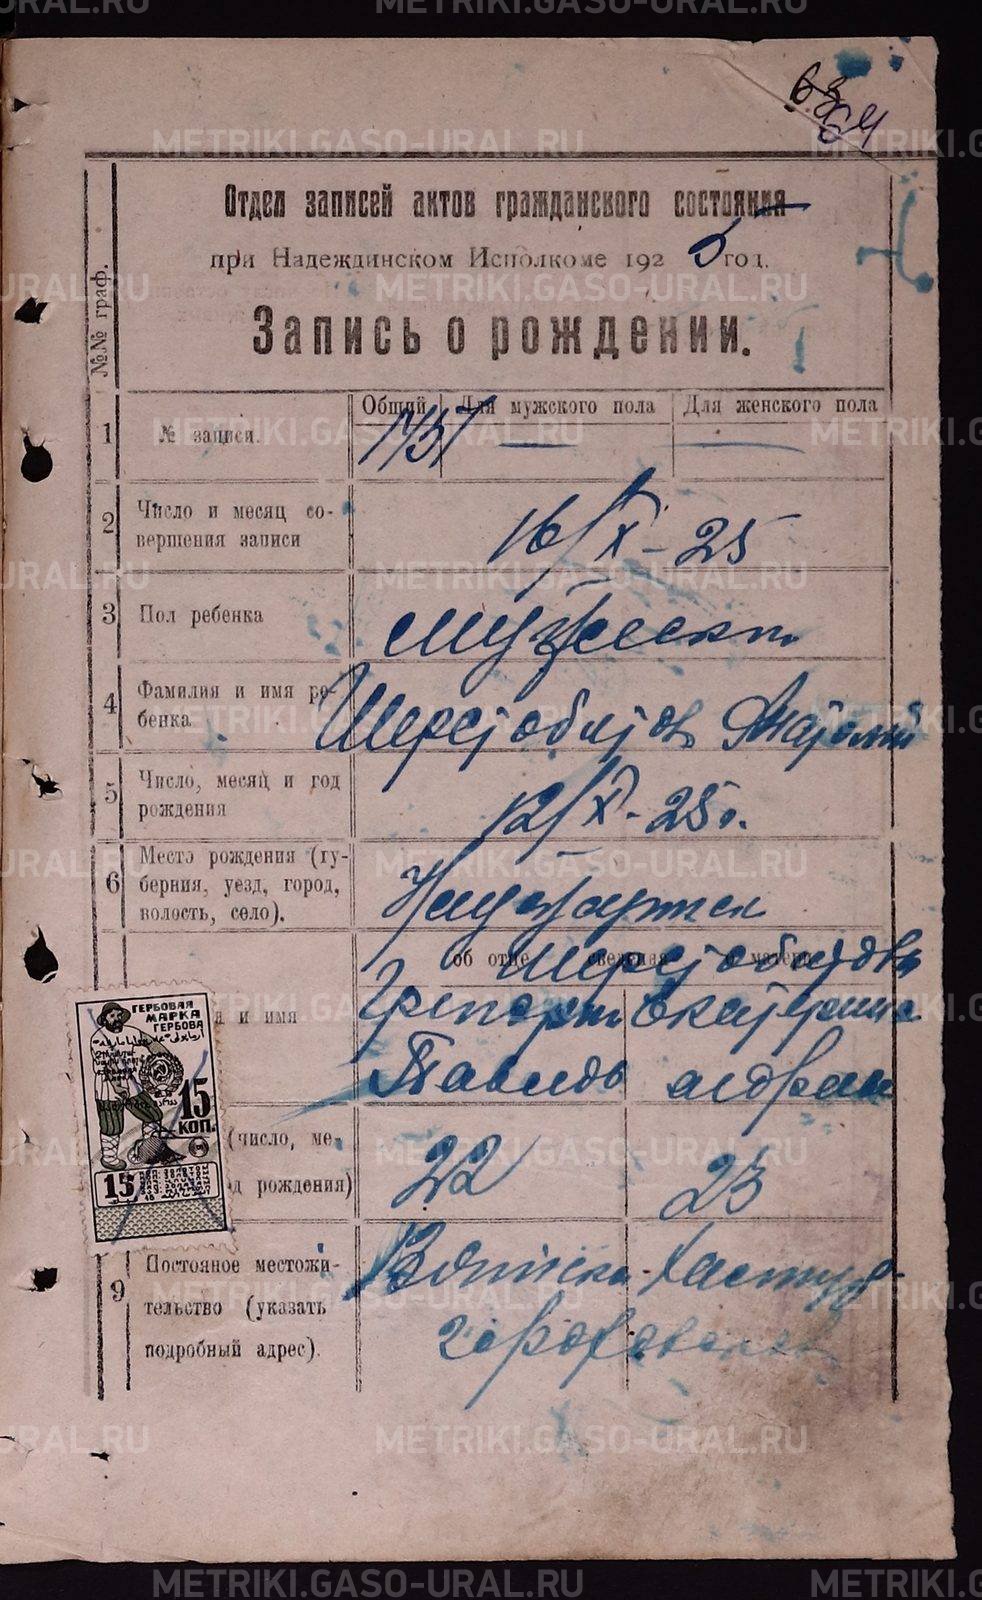 64
Отдел записей актов гражданского состояния
при Надеждинском Исполкоме 1925 год.
Запись о рождении.
№№ граф.
Общий Для мужского пола Для женского пола
1 № записи. — —
2 Число и месяц со-
вершения записи
16/X-25
3 Пол ребенка мужской
4 Фамилия и имя ре-
бенка
Шерстобитов Анатолий
5 Число, месяц и год
рождения
12/X-25г.
6 Место рождения (гу-
берния, уезд, город,
волость, село).
об отце сведения о матери
Шерстобитовы
и имя
Григорий Екатерина
Павлов
(число, ме-
рождения)
22 23
9 Постояное местожи-
тельство (указать
подробный адрес).
ГЕРБОВАЯ
МАРКА
ГЕРБОВА
15
КОП.
15
METRIKI.GASO-URAL.RU